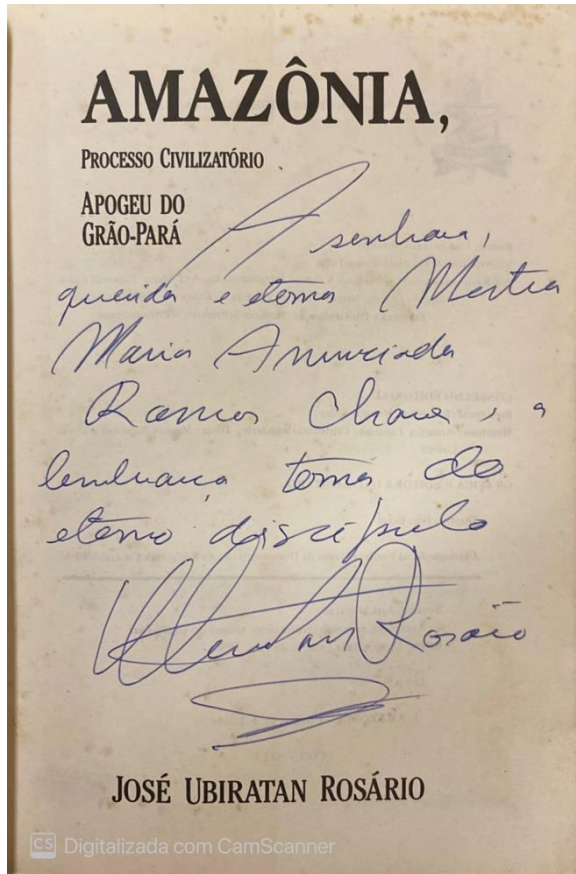 AMAZÔNIA,
PROCESSO CIVILIZATÓRIO
APOGEU DO
GRÃO-PARÁ
A senhora,
querida e eterna Mestra
Maria Annunciada
Ramos Chaves, a
lembrança terna do
eterno discípulo
Ubiratan Rosário
JOSÉ UBIRATAN ROSÁRIO
CS Digitalizada com CamScanner